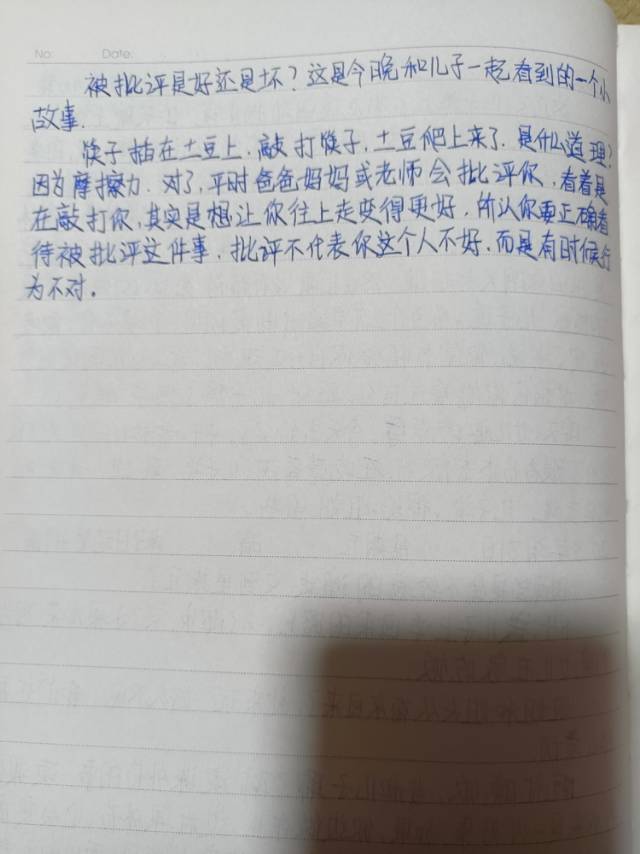 No:
Date:
被批评是好还是坏？这是今晚和儿子一起看到的一个小
故事.
筷子插在土豆上.敲打筷子,土豆爬上来了.是什么道理?
因为摩擦力.对了,平时爸爸妈妈或老师会批评你,看着是
在敲打你,其实是想让你往上走变得更好,所认你要正确看
待被批评这件事.批评不代表你这个人不好.而是有时候行
为不对.